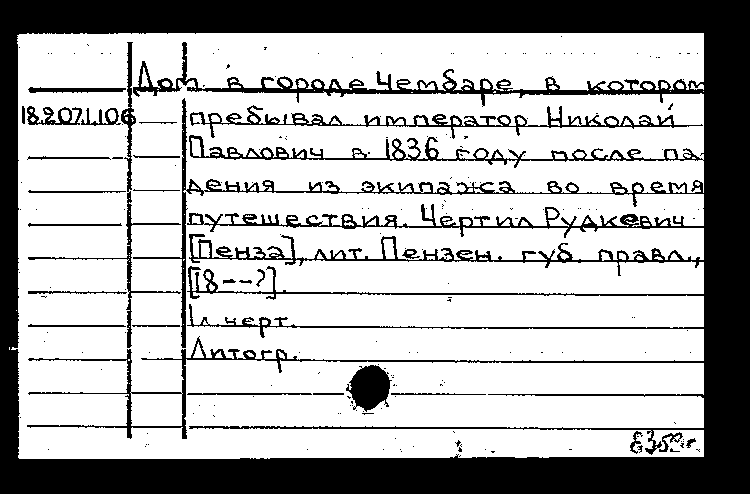 Дом в городе Чембаре, в котором
18.207.1.106 пребывал император Николай
Павлович в 1836 году после па-
дения из экипажа во время
путешествия. Чертил Рудкевич
[Пенза], лит. Пензен. губ. правл.,
[18--?].
1 л. черт.
Литогр.